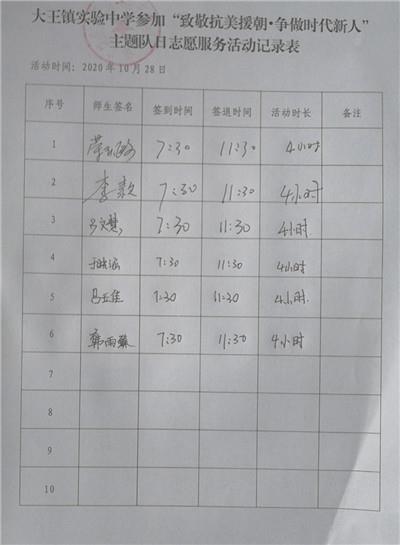 大王镇实验中学参加“致敬抗美援朝·争做时代新人”
主题队日志愿服务活动记录表
活动时间：2020年10月28日
序号 师生签名 签到时间 签退时间 活动时长 备注
1 7:30 11:30 4小时
2 李款 7:30 11:30 4小时
3 吕文慧 7:30 11:30 4小时
4 7:30 11:30 4小时
5 吕亚佳 7:30 11:30 4小时
6 郭雨 7:30 11:30 4小时
7
8
9
10